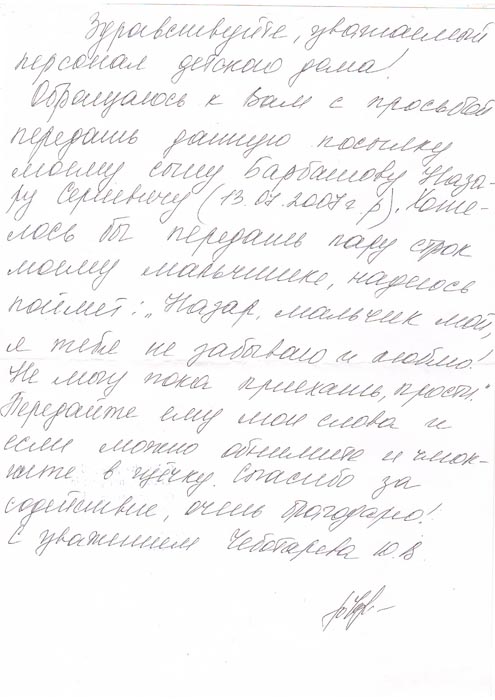 Здравствуйте, уважаемый
персонал детского дома!
Обращаюсь к Вам с просьбой
передать данную посылку
моему сыну Барбашову Наза-
ру Сергеевичу (13.07.2007г.р). Хоте-
лось бы передать пару строк
моему мальчишке, надеюсь
поймет: „Назар, мальчик мой,
я тебе не забываю и люблю!
Не могу пока приехать, прости."
Передайте ему мои слова и
если можно обнимите и чмок-
ните в щёчку. Спасибо за
содействие, очень благодарю!
С уважением Чеботарева Ю.В.